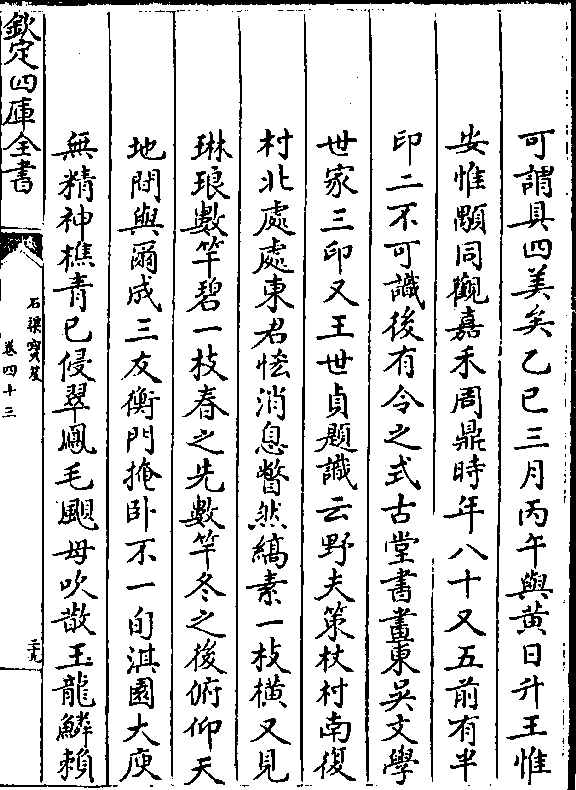 可謂具四美矣乙巳三月丙午與黄日升王惟
安惟顒同觀嘉禾周鼎時年八十又五前有半
印二不可識後有令之式古堂書畫東吳文學
世家三印又王世貞題識云野夫策杖村南復
村北處處東君恠消息瞥然縞素一枝横又見
琳琅數竿碧一枝春之先數竿冬之後俯仰天
地問與爾成三友衡門掩卧不一旬淇園大庾
無精神樵青已侵翠鳳毛颶母吹散玉龍鱗賴
欽定四庫全書
石渠寳笈
卷四十三
三九